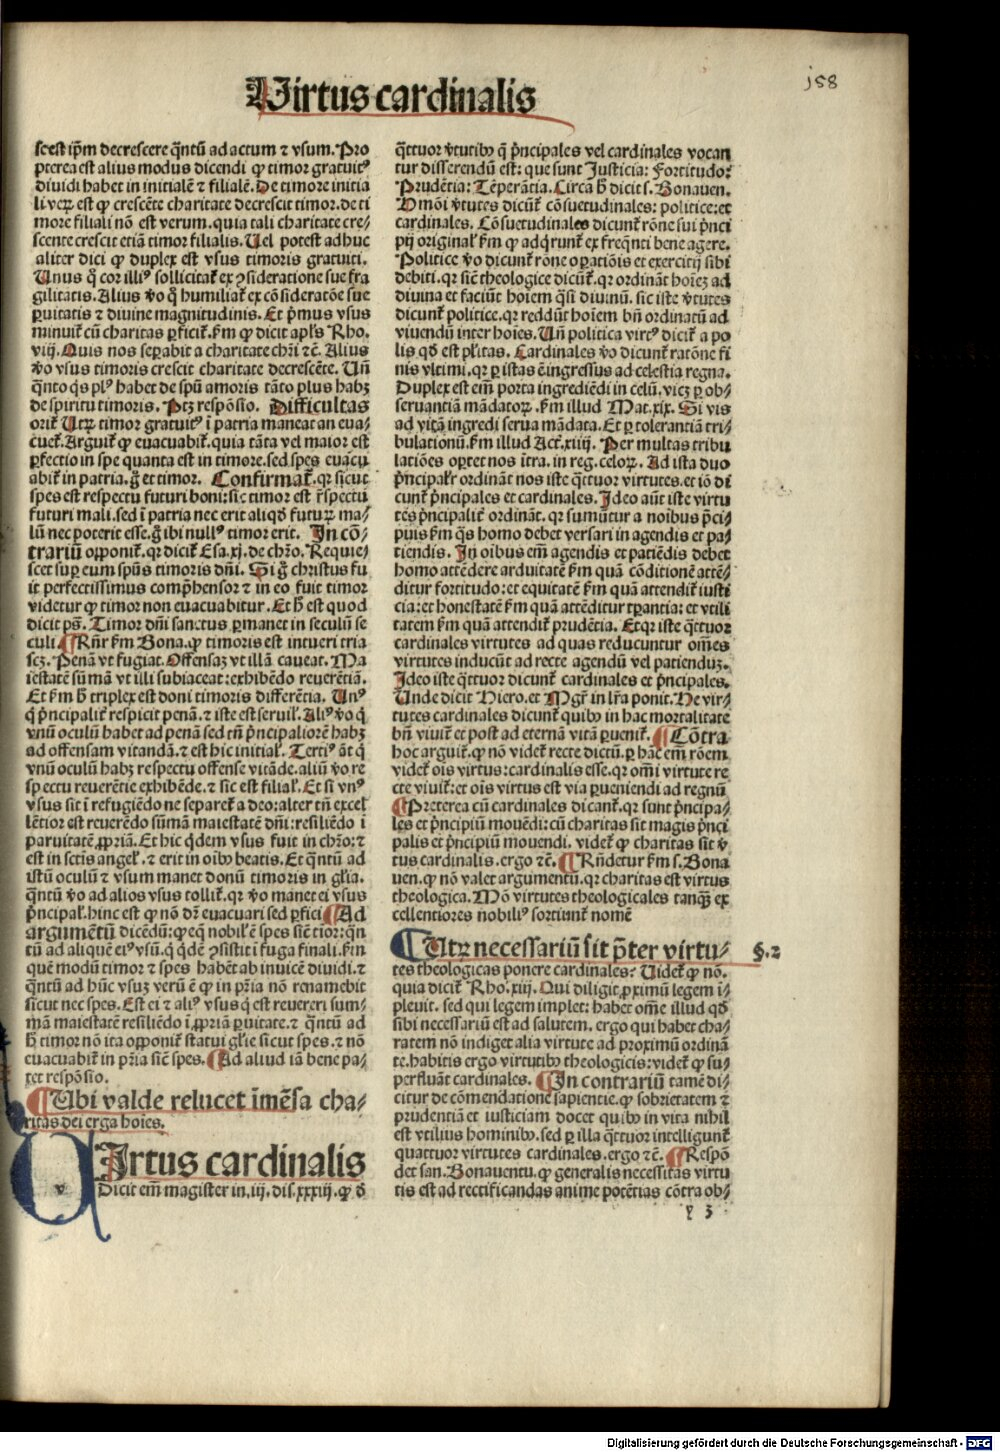 Virtus cardinalis
158
scest ip̄m decrescere q̄ntū ad actum ⁊ vsum. Pro
pterea est alius modus dicendi ꝙ timor gratuitꝰ
diuidi habet in initialē ⁊ filialē. De timore initia
li veꝝ est ꝙ crescēte charitate decrescit timor. de ti
more filiali nō est verum. quia tali charitate cre⸗
scente crescit etiā timor filialis. Uel potest adhuc
aliter dici ꝙ duplex est vsus timoris gratuiti.
Unus q̄ cor illiꝰ sollicitat̄ ex ↄsideratione sue fra
gilitatis. Alius v̄o q̄ humiliat̄ ex cōsideratōe sue
ꝑuitatis ⁊ diuine magnitudinis. Et p̄mus vsus
minuit̄ cū charitas ꝑficit̄. ẜm ꝙ dicit apl̄s Rho.
viij. Quis nos seꝑabit a charitate chr̄i ⁊c̄. Alius
v̄o vsus timoris crescit charitate decrescēte. Un̄
q̄nto q̇s plꝰ habet de spū amoris tāto plus habꝫ
de spiritu timoris. Ptꝫ respōsio. Difficultas
orit̄ Utꝝ timor gratuitꝰ ī patria maneat an eua⸗
cuet̄. Arguit̄ ꝙ euacuabit̄. quia tāta vel maior est
ꝑfectio in spe quanta est in timore. sed spes euacu
abit̄ in patria. g̊ et timor. Confirmat̄. qꝛ sicut
spes est respectu futuri boni: sic timor est r̄spectu
futuri mali. sed ī patria nec erit aliqd̄ futuꝝ ma⸗
lū nec poterit esse. g̊ ibi nullꝰ timor erit. In cō⸗
trariū opponit̄. qꝛ dicit̄ Esa. xj. de chr̄o. Requie⸗
scet suꝑ eum spūs timoris dn̄i. Si g̊ christus fu
it perfectissimus comp̄hensor ⁊ in eo fuit timor
videtur ꝙ timor non euacuabitur. Et h̄ est quod
dicit ps̄. Timor dn̄i sanctus ꝑmanet in seculū se
culi. ¶Rn̄r ẜm Bona. ꝙ timoris est intueri tria
scꝫ. Penā vt fugiat. Offensaꝫ vt illā caueat. Ma
iestatē sūmā vt illi subiaceat: exhibēdo reuerētiā.
Et ẜm h̄ triplex est doni timoris differētia. Unꝰ
q̄ p̄ncipalit̄ respicit penā. ⁊ iste est seruil̄. Aliꝰ v̄o q̄
vnū oculū habet ad penā sed tn̄ p̄ncipaliorē habꝫ
ad offensam vitandā. ⁊ est hic initial̄. Tertiꝰ āt q̄
vnū oculū habꝫ respectu offense vitāde. aliū v̄o re
spectu reuerētie exhibēde. ⁊ sic est filial̄. Et si vnꝰ
vsus sit ī refugiēdo ne separet̄ a deo: alter tn̄ excel
lētior est reuerēdo sūmā maiestatē dn̄i: resiliēdo ī
paruitatē ꝓpriā. Et hic q̇dem vsus fuit in chr̄o: ⁊
est in sctis angel̄. ⁊ erit in oībꝰ beatis. Et q̄ntū ad
istū oculū ⁊ vsum manet donū timoris in gl̄ia.
q̄ntū v̄o ad alios vsus tollit̄. qꝛ v̄o manet ei vsus
p̄ncipal̄. hinc est ꝙ nō dr̄ euacuari sed ꝑfici ¶Ad
argumētū dicēdū: ꝙ eq̄ nobil̄ ē spes siē tior: q̄n
tū ad aliquē eiꝰ vsū. q̄ q̇dē ↄsistit ī fuga finali. ẜm
quē modū timor ⁊ spes habēt ab inuicē diuidi. ⁊
q̄ntū ad hūc vsuꝫ verū ē ꝙ in pr̄ia nō remanebit
sicut nec spes. Est ei ⁊ aliꝰ vsus q̄ est reuereri sum⸗
mā maiestatē resiliēdo ī ꝓpriā ꝑuitatē. ⁊ q̄ntū ad
h̄ timor nō ita opponit̄ statui gl̄ie sicut spes. ⁊ nō
euacuabit̄ in pr̄ia sic̄ spes. ¶Ad aliud iā bene pa⸗
tet respōsio.
¶Ubi valde relucet īmēsa cha⸗
ritas dei erga hoīes.
VIrtus cardinalis
Dicit em̄ magister in. iij. dis. xxxiij. ꝙ d̄
q̄ttuor v̄tutibꝰ q̄ p̄ncipales vel cardinales vocan
tur disserendū est: que sunt Justicia: Fortitudo:
Prudētia: Tēperātia. Circa h̄ dicit s. Bonauen.
ꝙ mōi v̄tutes dicūt̄ cōsuetudinales: politice: et
cardinales. Cōsuetudinales dicunt̄ rōne sui p̄nci
pij original̄ ẜm ꝙ adq̇runt̄ ex freq̄nti bene agere.
Politice v̄o dicunt̄ rōne oꝑatiōis et exercitij sibi
debiti. qꝛ sic̄ theologice dicūt̄. qꝛ ordināt hoīeꝫ ad
diuina et faciūt hoīem q̄si diuinū. sic iste v̄tutes
dicunt̄ politice. qꝛ reddūt hoīem bn̄ ordinatū ad
viuendū inter hoīes. Un̄ politica virtꝰ dicit̄ a po
lis qd̄ est pl̄itas. Cardinales v̄o dicunt̄ ratōne fi
nis vltimi. qꝛ ꝑ istas ē ingressus ad celestia regna.
Duplex est em̄ porta ingrediēdi in celū. vicꝫ ꝑ ob⸗
seruantiā mādatoꝝ. ẜm illud Mat. xix. Si vis
ad vitā ingredi serua mādata. Et ꝑ tolerantiā tri⸗
bulationū. ẜm illud Act̄. xiiij. Per multas tribu
latiōes oꝑtet nos ītra. in reg. celoꝝ. Ad ista duo
p̄ncipalr̄ ordināt nos iste q̄ttuor virtutes. et iō di
cunt̄ p̄ncipales et cardinales. Ideo aūt iste virtu
tes p̄ncipalit̄ ordināt. qꝛ sumūtur a noībus p̄ci⸗
puis ẜm q̄s homo debet versari in agendis et pa⸗
tiendis. In oībus em̄ agendis et patiēdis debet
homo attēdere arduitatē ẜm quā cōditionē attē⸗
ditur fortitudo: et equitatē ẜm quā attendit̄ iusti
cia: et honestatē ẜm quā attēditur tꝑantia: et vtili
tatem ẜm quā attendit̄ prudētia. Et qꝛ iste q̄ttuor
cardinales virtutes ad quas reducuntur om̄es
virtutes inducūt ad recte agendū vel patienduꝫ.
Ideo iste q̄ttuor dicunt̄ cardinales et p̄ncipales.
Unde dicit Hiero. et Mgr̄ in lr̄a ponit. He vir⸗
tutes cardinales dicunt̄ quibꝰ in hac mortalitate
bn̄ viuit̄ et post ad eternā vitā ꝑuenit̄. ¶Cōtra
hoc arguit̄. ꝙ nō videt̄ recte dictū. ꝑ hāc em̄ rōem
videt̄ oīs virtus: cardinalis esse. qꝛ om̄i virtute re
cte viuit̄: et oīs virtus est via ꝑueniendi ad regnū
¶Preterea cū cardinales dicant̄. qꝛ sunt p̄ncipa⸗
les et p̄ncipiū mouēdi: cū charitas sit magis p̄nci
palis et p̄ncipiū mouendi. videt̄ ꝙ charitas sit v̄
tus cardinalis. ergo ⁊c̄. ¶Rn̄detur ẜm s. Bona
uen. ꝙ nō valet argumentū. qꝛ charitas est virtus
theologica. Mō virtutes theologicales tanq̄ꝫ ex
cellentiores nobiliꝰ sortiunt̄ nomē
¶Utꝝ necessariū sit p̄ter virtu⸗ §. 2
tes theologicas ponere cardinales? Uidet̄ ꝙ nō.
quia dicit̄ Rho. xiij. Qui diligit ꝓximū legem ī⸗
pleuit. sed qui legem implet: habet om̄e illud qd̄
sibi necessariū est ad salutem. ergo qui habet cha⸗
ratem nō indiget alia virtute ad proximū ordinā
te. habitis ergo virtutibꝰ theologicis: videt̄ ꝙ su⸗
perfluāt cardinales. ¶In contrariū tamē di⸗
citur de cōmendatione sapientie. ꝙ sobrietatem ⁊
prudentiā et iusticiam docet quibꝰ in vita nihil
est vtilius hominibꝰ. sed ꝑ illa q̄ttuor intelligunt̄
quattuor virtutes cardinales. ergo ⁊c̄. ¶Respō
det san. Bonauentu. ꝙ generalis necessitas virtu
tis est ad rectificandas anime potētias cōtra ob⸗
y 3
Digitalisierung gefördert durch die Deutsche Forschungsgemeinschaft - DFG